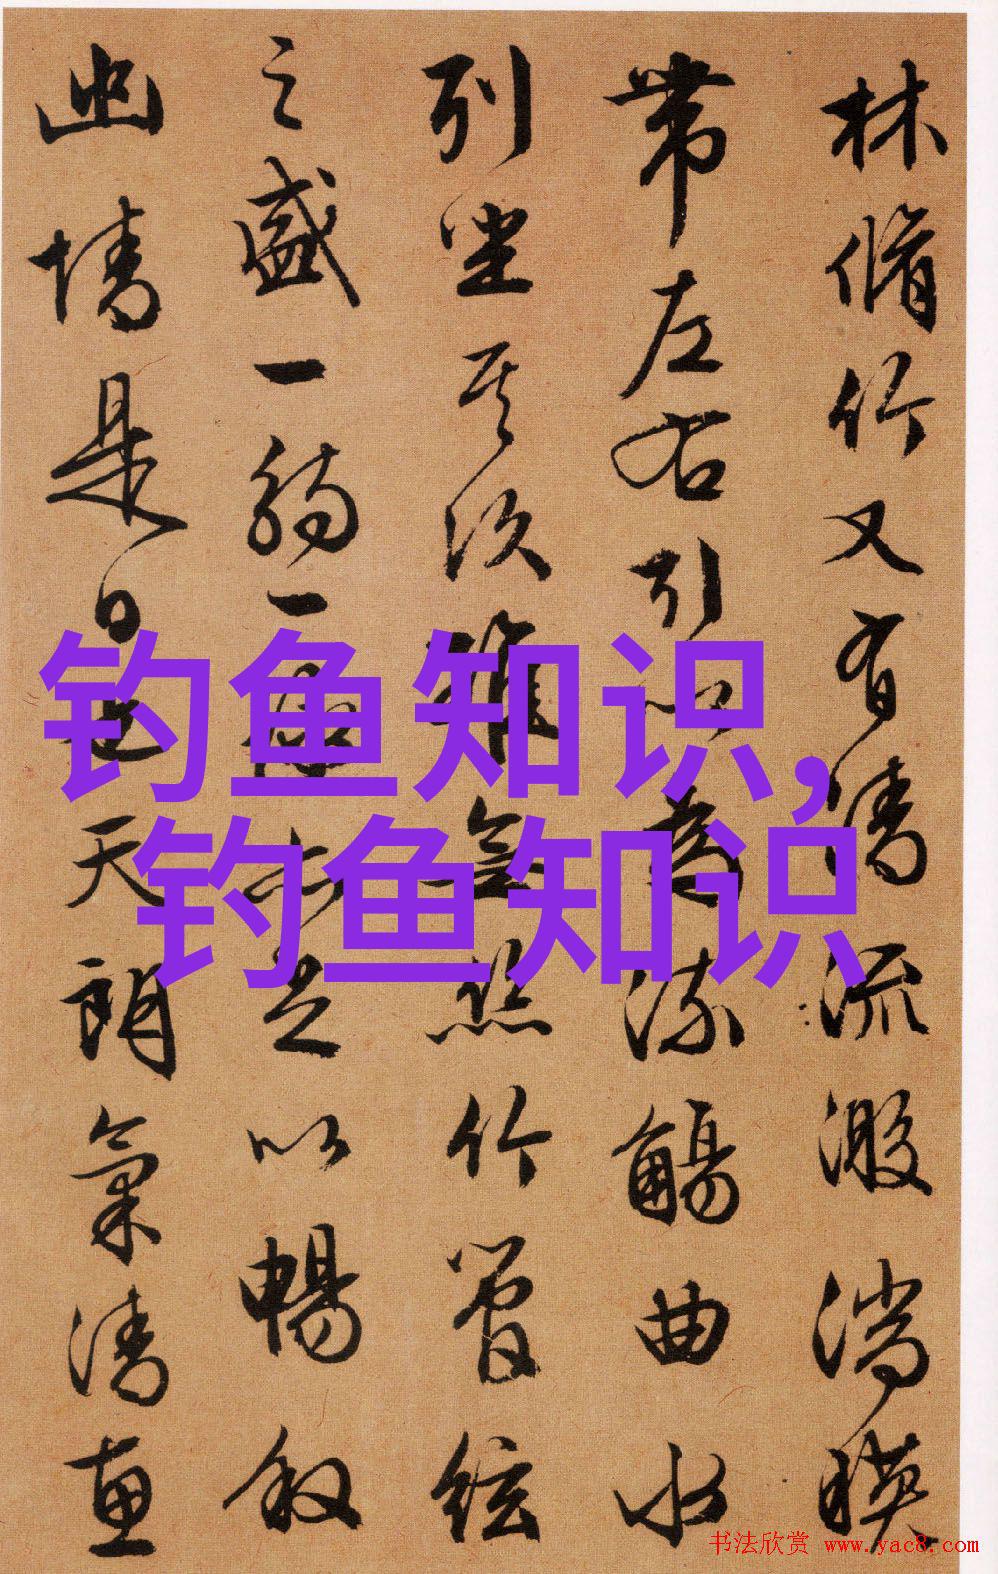 林脩竹又有清流激湍暎
帶左右引以為流觴曲水
列坐其次雖無絲竹管絃
之盛一觴一詠亦足以暢敘
幽情是日也天朗氣清惠
钓鱼知识,
钓鱼知识
书法欣赏 www.yac8.com